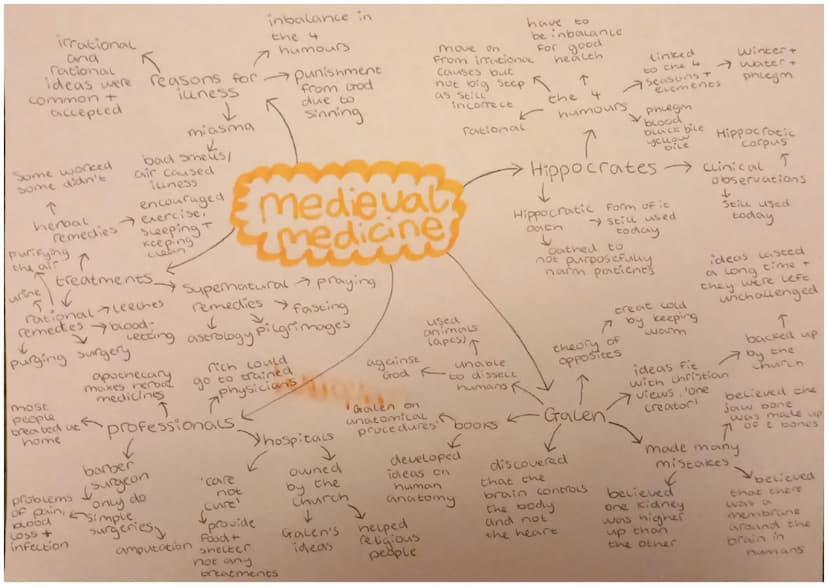 medieval
medicine
reasons for
illness
irrational
and
rational
ideas were
common +
accepted
inbalance in
the 4
humours
punishment
from God
due to
sinning
miasma
bad smells/
air caused
illness
treatments
herbal
remedies
some worked
some didn't
encouraged
exercise,
sleeping +
keeping
clean
rational
remedies
purifying
the air
urine
leeches
blood-
letting
purging
surgery
supernatural
remedies
praying
fasting
pilgrimages
astrology
professionals
apothecary
makes herbal
medicines
rich could
go to trained
physicians
most
people
treated at
home
barber
surgeon
only do
simple
surgeries
problems
of pain,
blood
loss +
infection
amputation
hospitals
'care
not
cure'
provide
food +
shelter
not any
treatments
owned
by the
church
Galen's
ideas
helped
religious
people
Hippocrates
the 4
humours
rational
move on
from irrational
causes but
not big step
as still
incorrect
have to
be inbalance
for good
health
linked
to the 4
seasons +
elements
winter +
water +
phlegm
phlegm
blood
black bile
yellow
bile
clinical
observations
Hippocratic
corpus
still used
today
Hippocratic
oath
form of it
still used
today
oathed to
not purposefully
harm patients
Galen
theory of
opposites
treat cold
by keeping
warm
ideas fit
with christian
views, 'one
creator'
backed up
by the
church
ideas lasted
a long time +
they were left
unchallenged
made many
mistakes
believed the
jaw bone
was made up
of 2 bones
believed
that there
was a
membrane
around the
brain in
humans
believed
one kidney
was higher
up than
the other
discovered
that the
brain controls
the body
and not
the heart
books
'Galen on
anatomical
procedures'
developed
ideas on
human
anatomy
unable
to dissect
humans
used
animals
(apes)
against
God